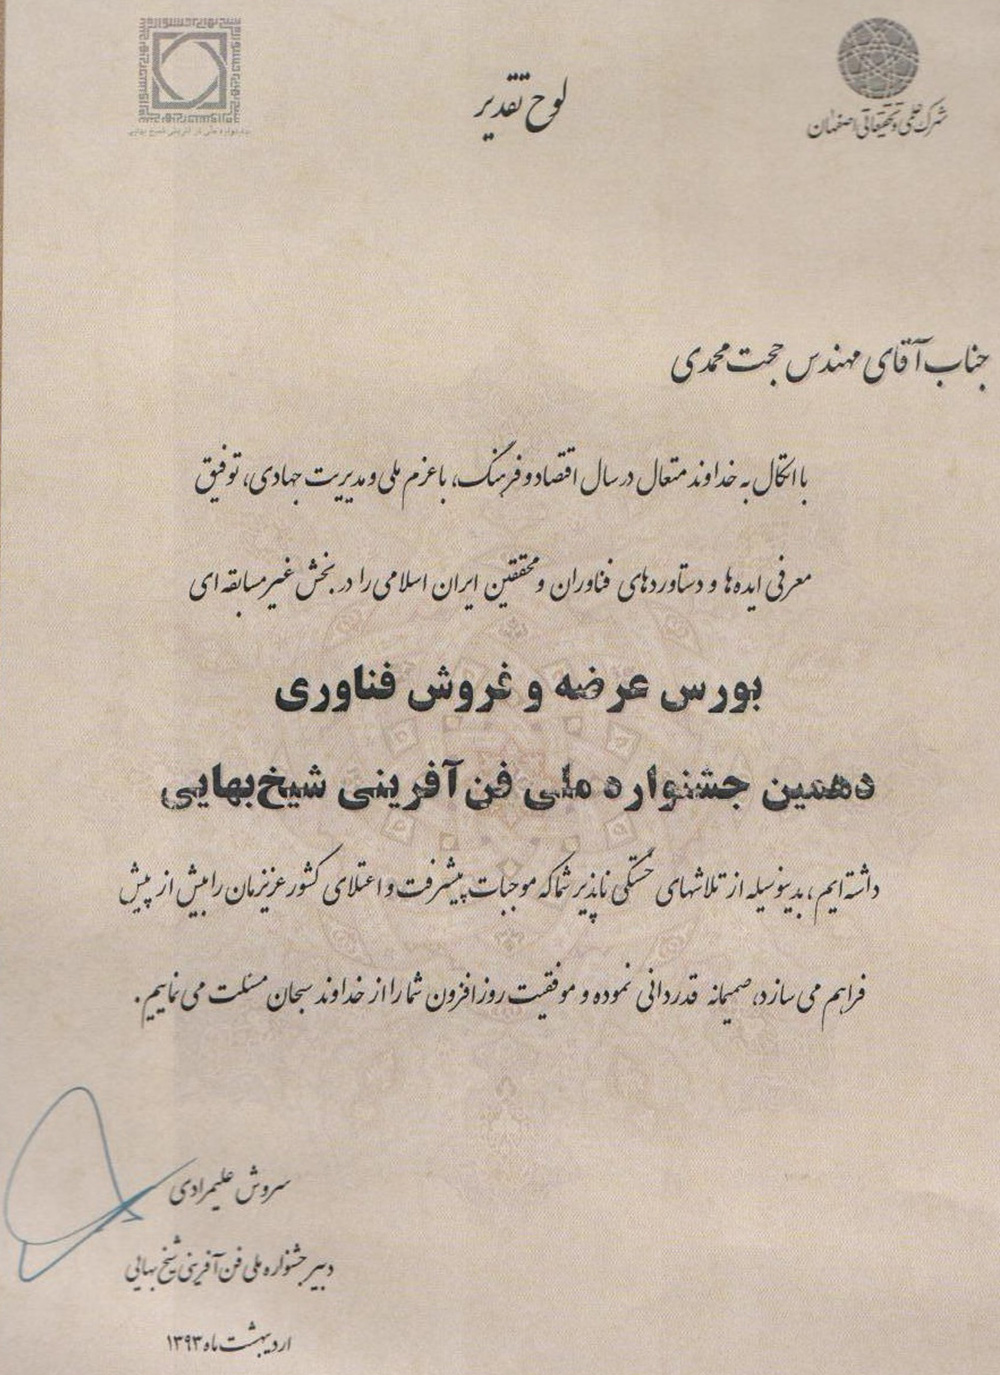 شهرک علمی و تحقیقاتی اصفهان
لوح تقدیر
جناب آقای مهندس حجت محمدی
با اتکال به خداوند متعال در سال اقتصاد و فرهنگ، با عزم ملی و مدیریت جهادی، توفیق
معرفی ایده‌ها و دستاوردهای فناوران و محققین ایران اسلامی را در بخش غیر مسابقه ای
بورس عرضه و فروش فناوری
دهمین جشنواره ملی فن‌آفرینی شیخ‌بهایی
داشته ایم، بدینوسیله از تلاشهای خستگی ناپذیر شما که موجبات پیشرفت و اعتلای کشور عزیزمان را بیش از پیش
فراهم می سازد، صمیمانه قدردانی نموده و موفقیت روزافزون شما را از خداوند سبحان مسئلت می نماییم.
سروش علیمرادی
دبیر جشنواره ملی فن آفرینی شیخ بهایی
اردیبهشت ماه ۱۳۹۳